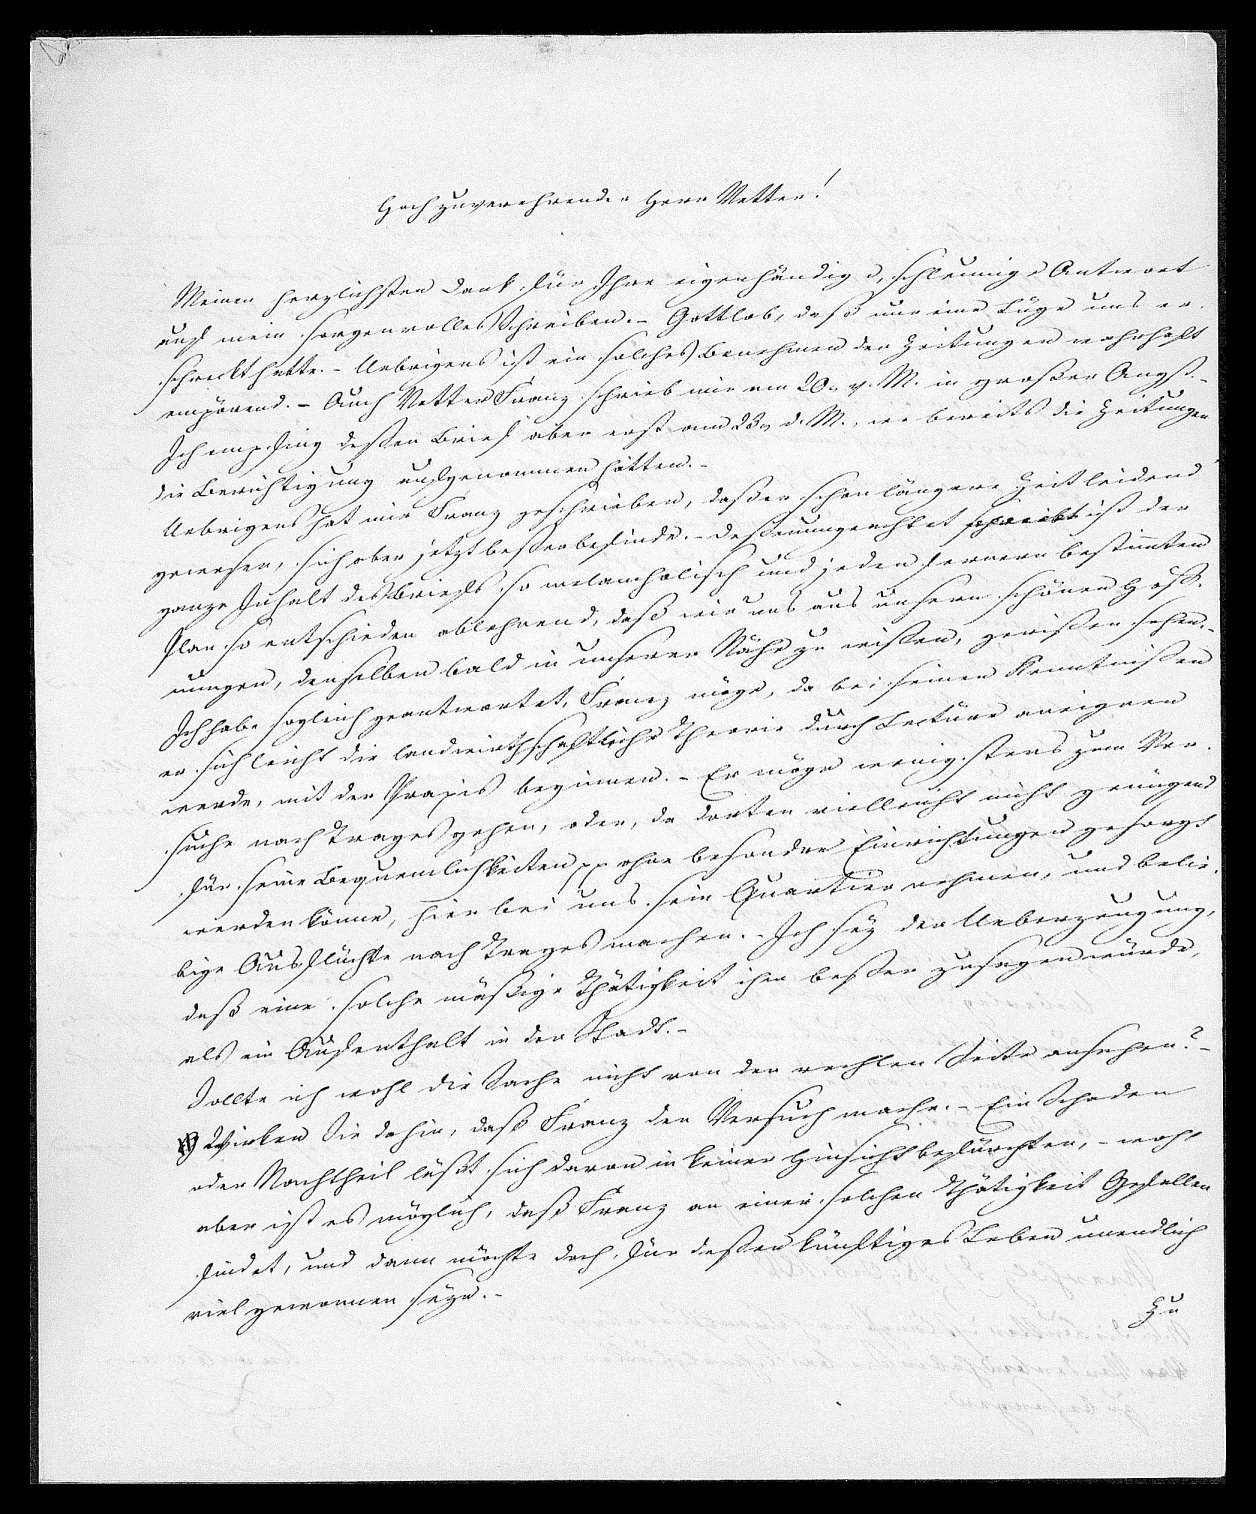 Hochzuverehrender Herr Vetter!
Meinen herzlichsten Dank für Ihre eigenhändige, schleunige Antwort
auf mein sorgenvolles Schreiben. – Gottlob, daß nur eine Lüge uns er-
schreckt hatte. – Uebrigens ist ein solches Benehmen der Zeitungen wahrhaft
empörend. – Auch Vetter Franz schrieb mir am 20. v. M. in großer Angst. –
Ich empfing deßen Brief aber erst am 23. d. M., wo bereits die Zeitungen
die Berichtigung aufgenommen hatten. –
Uebrigens hat mir Franz geschrieben, daß er schon längere Zeit leidend
gewesen, sich aber jetzt beßer befinde. – Deßenungeachtet ist der
ganze Inhalt des Briefs so melancholisch und jeden fernern bestimten
Plan so entschieden ablehnend, daß wir uns aus unsern schönen Hoff-
nungen, denselben bald in unserer Nähe zu wißen, gerißen sehen. –
Ich habe sogleich geantwortet, Franz möge, da bei seinen Kenntnißen
er sich leicht die landwirthschaftliche Theorie durch Lectüre aneignen
werde, mit der Praxis beginnen. – Er möge wenigstens zum Ver-
suche nach Trages gehen, oder, da dorten vielleicht nicht genügend
für seine Bequemlichkeiten pp ohne besondre Einrichtungen gesorgt
werden könne, hier bei uns sein Quartier nehmen, und belie-
bige Ausflüchte nach Trages machen. – Ich sey der Ueberzeugung,
daß eine solche mäßige Thätigkeit ihm beßer zusagen würde,
als ein Aufenthalt in der Stadt. –
Sollte ich wohl die Sache nicht von der rechten Seite ansehen? –
Wirken Sie dahin, daß Franz den Versuch mache. – Ein Schaden
oder Nachtheil läßt sich davon in keiner Hinsicht befürchten, – wohl
aber ist es möglich, daß Franz an einer solchen Thätigkeit Gefallen
findet, und dann möchte doch für deßen künftiges Leben unendlich
viel gewonnen seyn. –
Zu